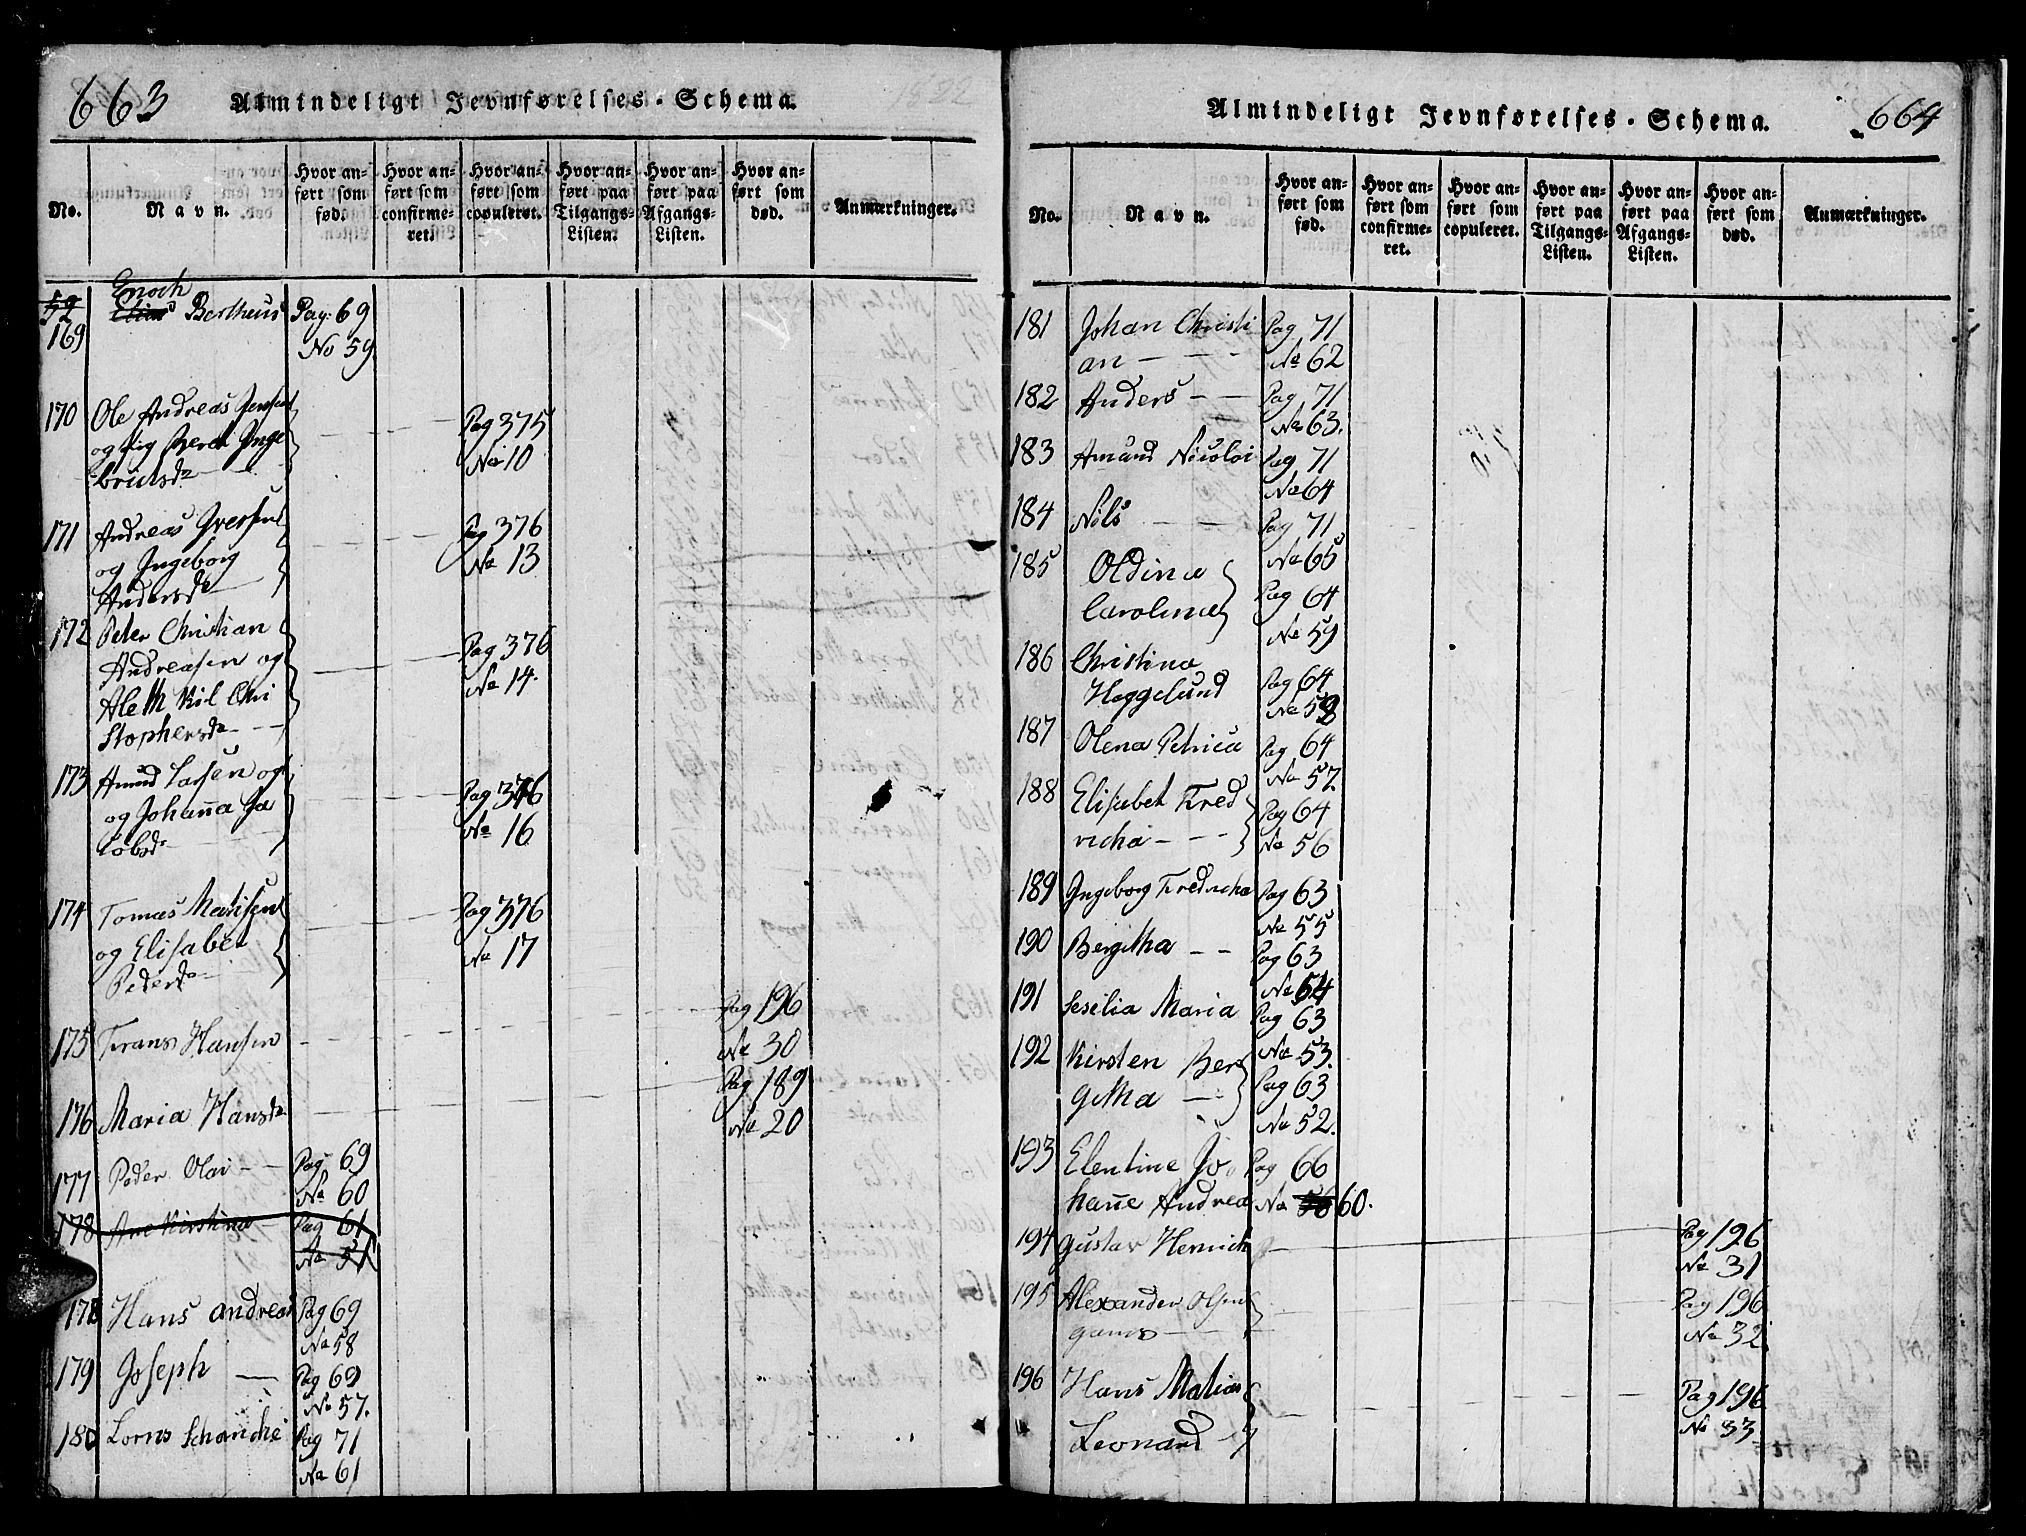 663 Almindeligt Jevnførelses-Schema.
No. Navn. Hvor anført som fød. Hvor anført som confirmeret. Hvor anført som copuleret. Hvor anført paa Tilgangs-Listen. Hvor anført paa Afgangs-Listen. Hvor anført som død. Anmærkninger.
Enoch
59 Elias Bertheus Pag: 69
169 No 59
170 Ole Andreas Jensen
og Berth Inge Pag 375
brittsd No 10
171 Andreas Iversen Pag 376
og Ingeborg No 13
Andersd
172 Peter Christian
Andreasen og Pag 376
Aleth Kil Chri No 14.
stophersd
173 Amund Larsen og Pag 376
og Johanna Ja No 16
cobsd
174 Tomas Matisen Pag 376
og Elisabet No 17
Pedersd
Pag 196
175 Frans Hansen No 30
Pag 189
176 Maria Hansd No 20
177 Peder Olai Pag 69
No 60
178 Ane Kirstina Pag 61
No 51
178 Hans Andreas Pag 69
No 58
179 Joseph Pag 69
No 57.
180 Lorns Schanche Pag 71
No 61
Almindeligt Jevnførelses-Schema. 664
No. Navn. Hvor anført som fød. Hvor anført som confirmeret. Hvor anført som copuleret. Hvor anført paa Tilgangs-Listen. Hvor anført paa Afgangs-Listen. Hvor anført som død. Anmærkninger.
181 Johan Christi Pag 71
an No 62
182 Anders Pag 71
No 63.
183 Amund Nicolai Pag 71
No 64
184 Nils Pag 71
No 65
185 Oldina
Carolina Pag 64
No 59
186 Christina
Heggelund Pag 64
No 58
187 Olena Petrica Pag 64
No 57
188 Elisabet Fred Pag 64
richa No 56
189 Ingeborg Fredricha Pag 63
No 55
190 Bergitha Pag 63
No 54
191 Seselia Maria Pag 63
No 53.
192 Kirsten Ber Pag 63
githa No 52.
193 Elentine Jo Pag 66
hanne Andrea No 56 60.
194 Gustav Henrich Pag 196
No 31
195 Alexander Olsen Pag 196
No 32
196 Hans Matias Pag 196
Leonard No 33